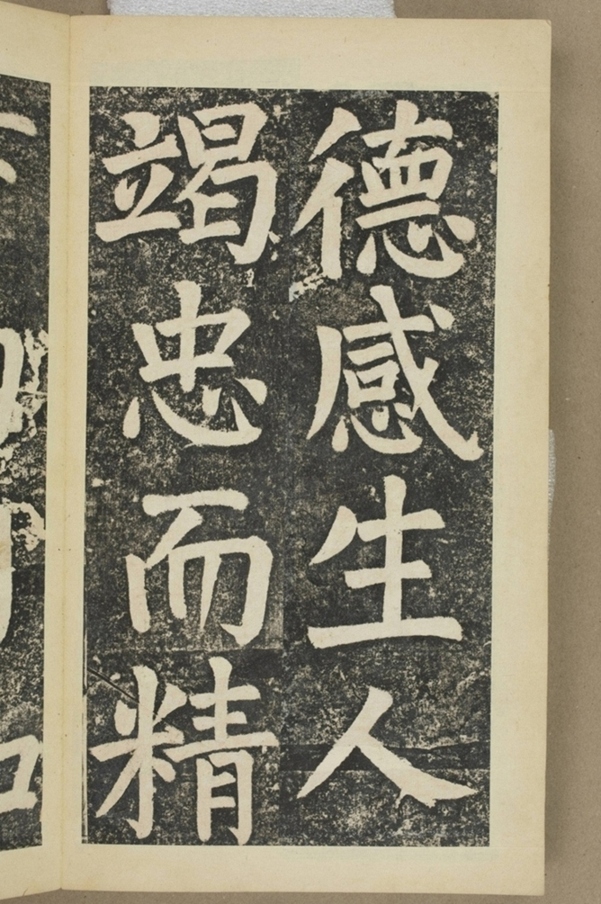 德感生人
竭忠而精